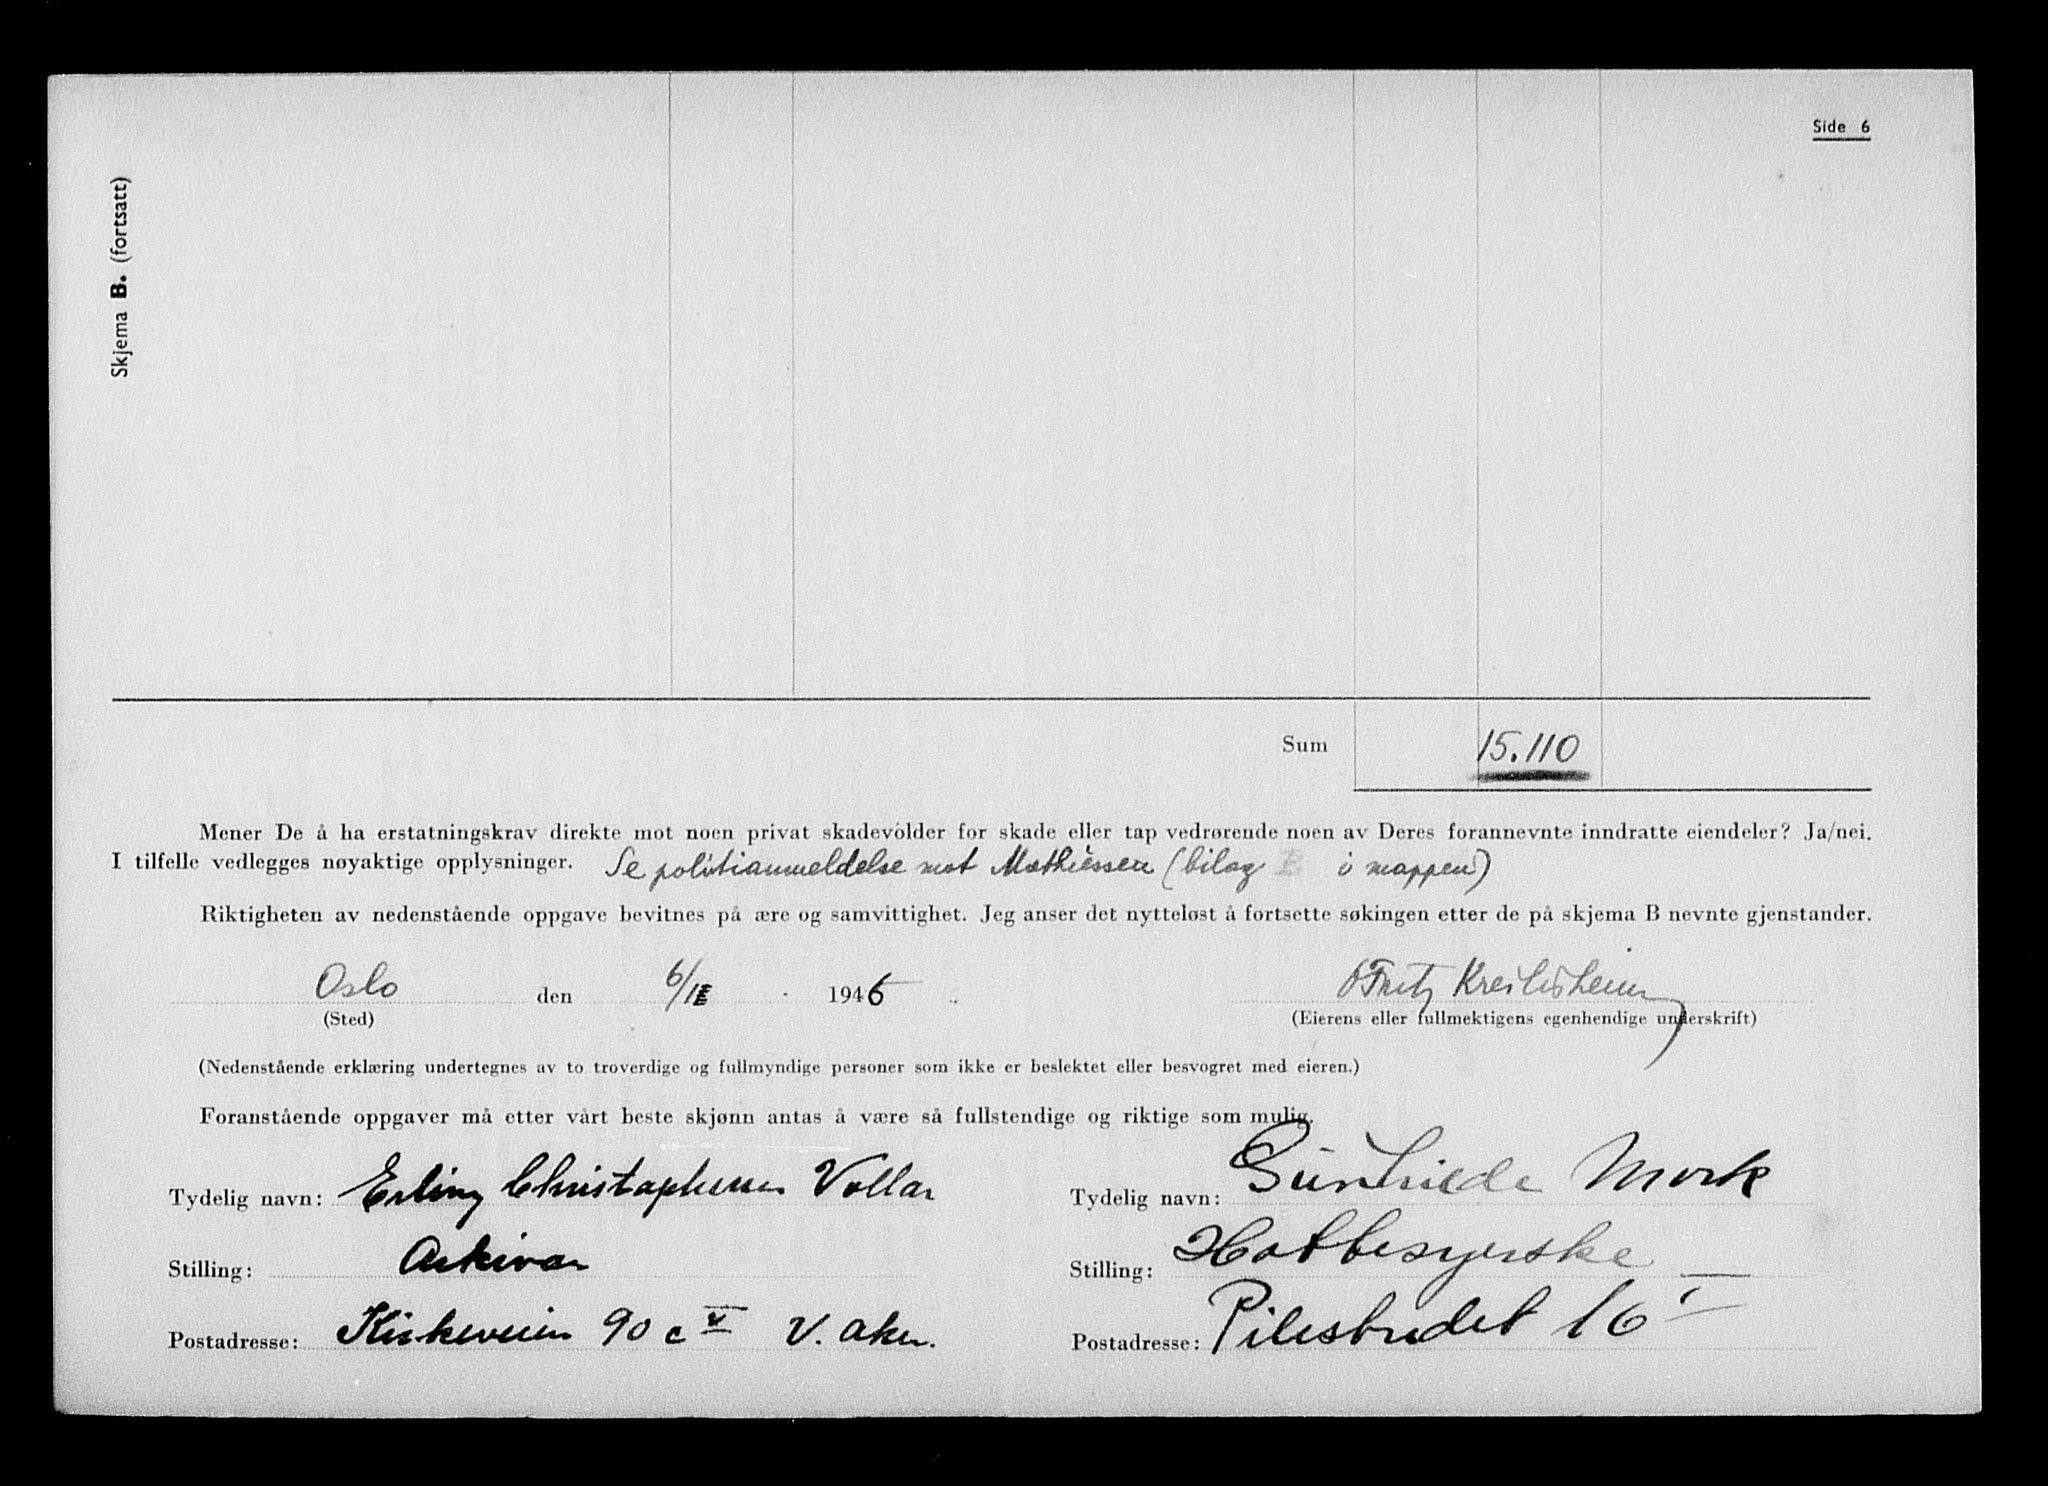 Side 6
Skjema B. (fortsatt)
Sum 15.110
Mener De å ha erstatningskrav direkte mot noen privat skadevolder for skade eller tap vedrørende noen av Deres forannevnte inndratte eiendeler? Ja/nei.
I tilfelle vedlegges nøyaktige opplysninger. Se politianmeldelse mot Mathiessen (bilag i mappen)
Riktigheten av nedenstående oppgave bevitnes på ære og samvittighet. Jeg anser det nytteløst å fortsette søkingen etter de på skjema B nevnte gjenstander.
Oslo den 1946 Fritz
(Sted) (Eierens eller fullmektigens egenhendige underskrift)
(Nedenstående erklæring undertegnes av to troverdige og fullmyndige personer som ikke er beslektet eller besvogret med eieren.)
Foranstående oppgaver må etter vårt beste skjønn antas å være så fullstendige og riktige som mulig.
Tydelig navn: Erling Christophersen Vollan Tydelig navn: Gunhilde Mork
Stilling: Arkivar Stilling:
Postadresse: Kirkeveien 90 c V V. Aker. Postadresse: Pilestredet 16 I